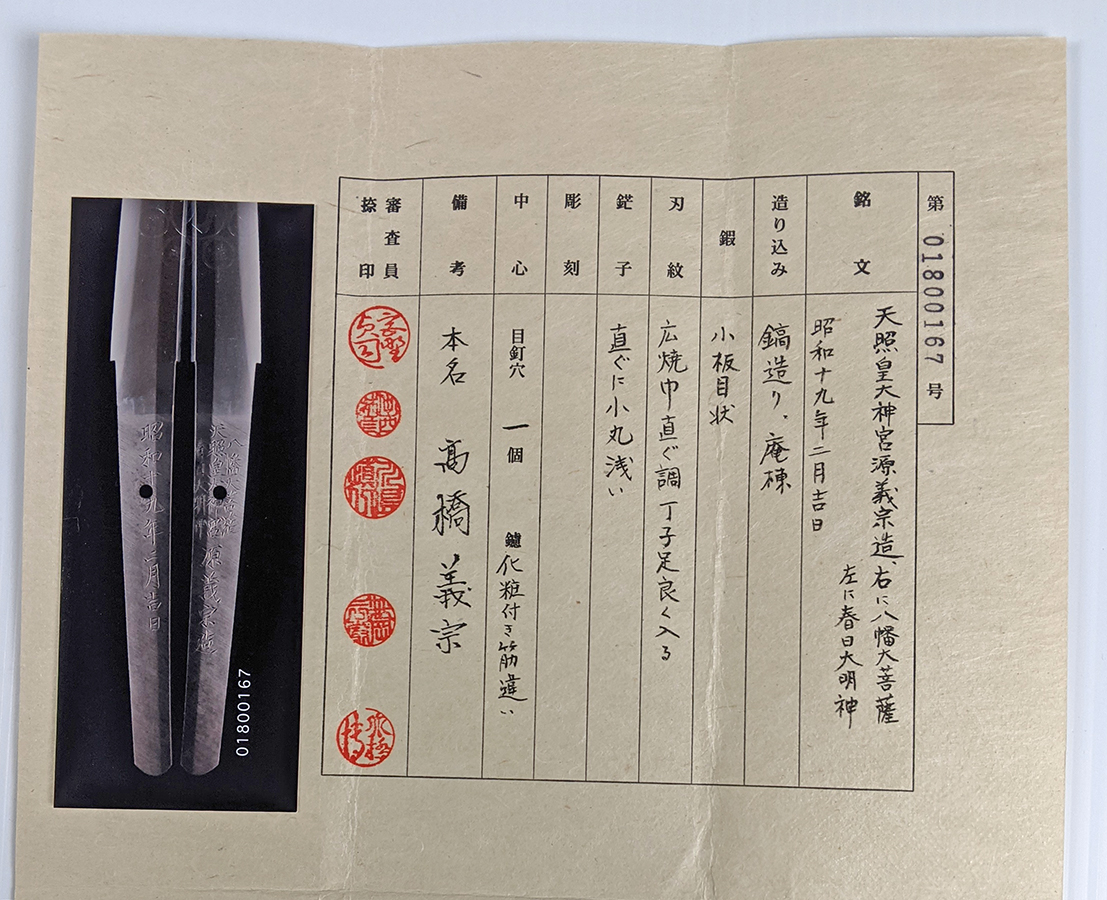 第 01800167 号
銘文
天照皇大神宮源義宗造、右に八幡大菩薩
左に春日大明神
昭和十九年二月吉日
造り込み
鎬造り、庵棟
鍜
小板目状
刃紋
広焼巾直ぐ調丁子足良く入る
鋩子
直ぐに小丸浅い
彫刻
中心
目釘穴 一個 鑢 化粧付き筋違い
備考
本名 髙橋義宗
審査員
捺印
昭和十九年二月吉日
八幡大菩薩
天照皇大神宮源義宗造
01800167